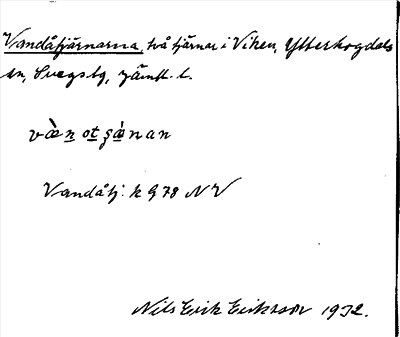 Vandåtjärnarna, två tjärnar i Viken, Ytterhogdals
sn, Svegs tg, Jämtl. l.
vὰn ot ʂὰnan
Vandåtj: k G 78 NV
Nils Erik Eriksson 1932.